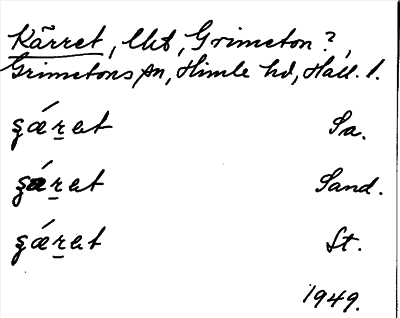 Kärret, lkt, Grimeton?,
Grimetons sn, Himle hd, Hall. l.
gǽṟet Sa.
gǽṟet Sand.
gǽṟet St.
1949.